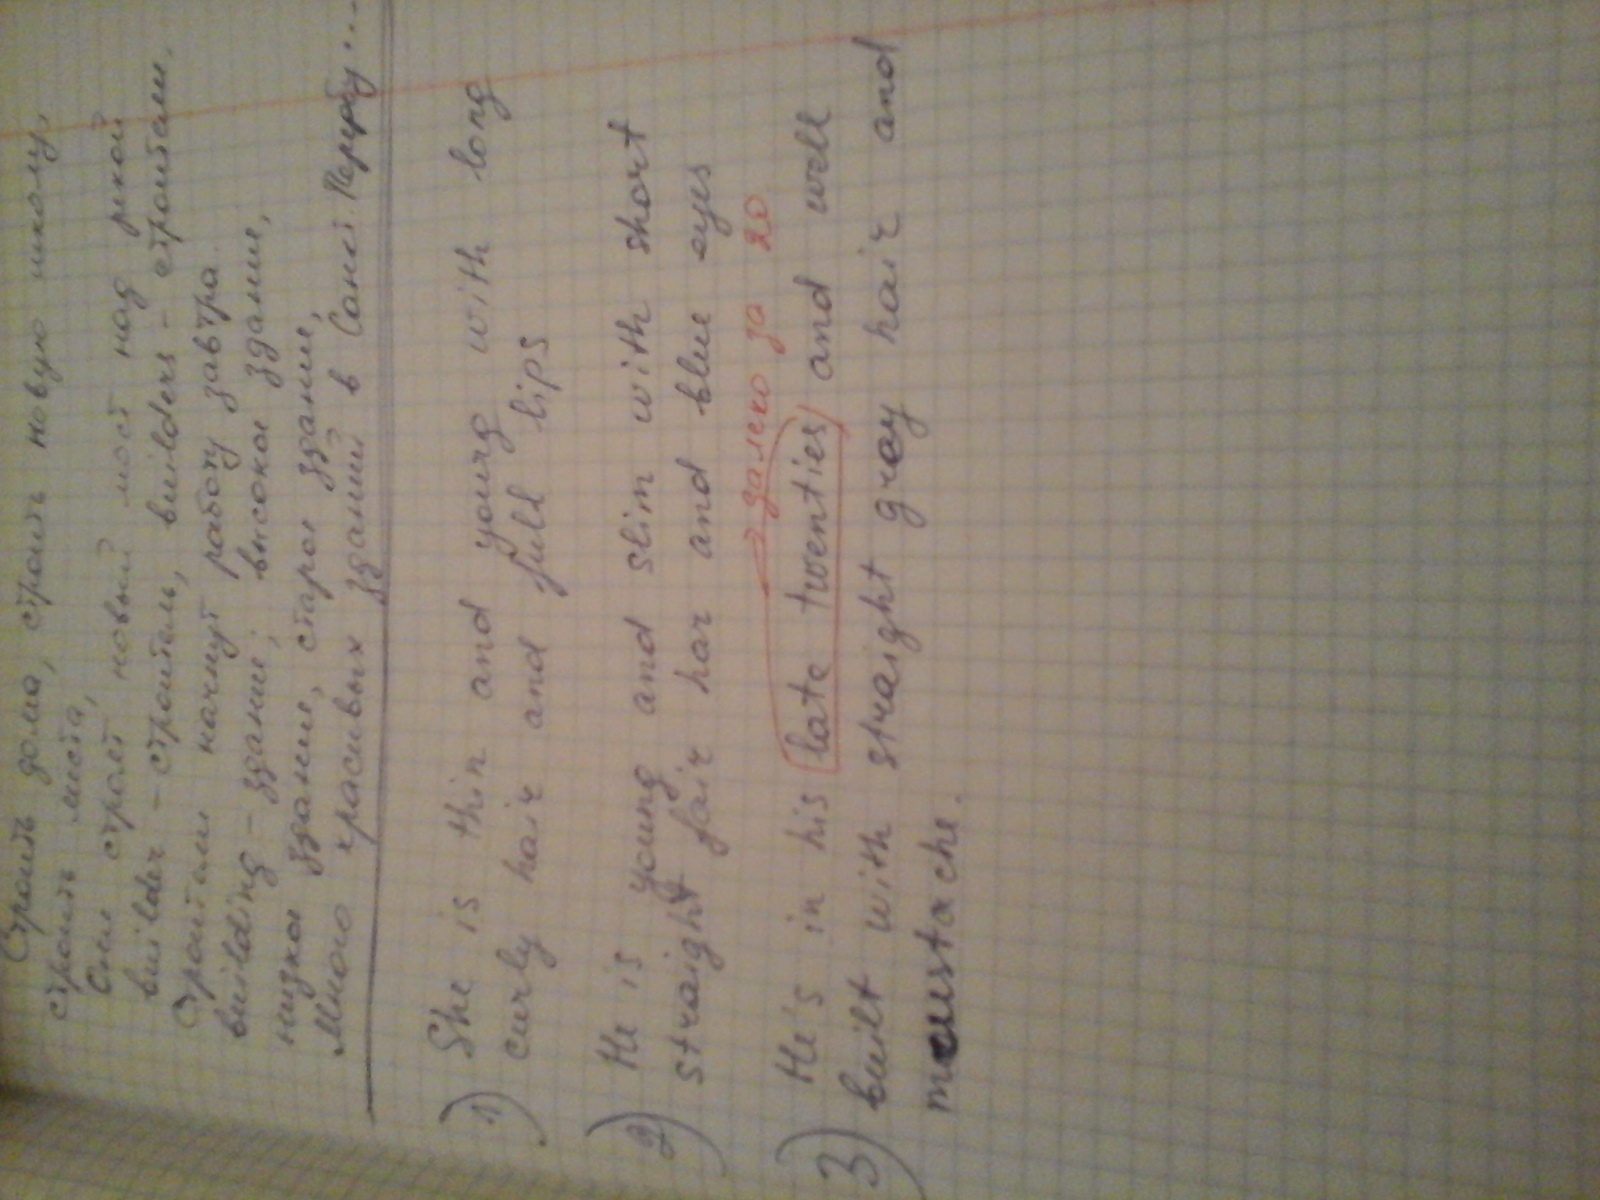 Строить дома, строить новую школу,
строить места,
Они строят новый мост над рекой
builder - строитель, builders - строители.
Строители начнут работу завтра
building - здание, высокое здание,
низкое здание, старое здание,
Много красивых зданий в Санкт Петербу...
1) She is thin and young with long
curly hair and full lips
2) He is young and slim with short
straight fair har and blue eyes
далеко за 20
3) He's in his late twenties and well
built with straight gray hair and
moustache.